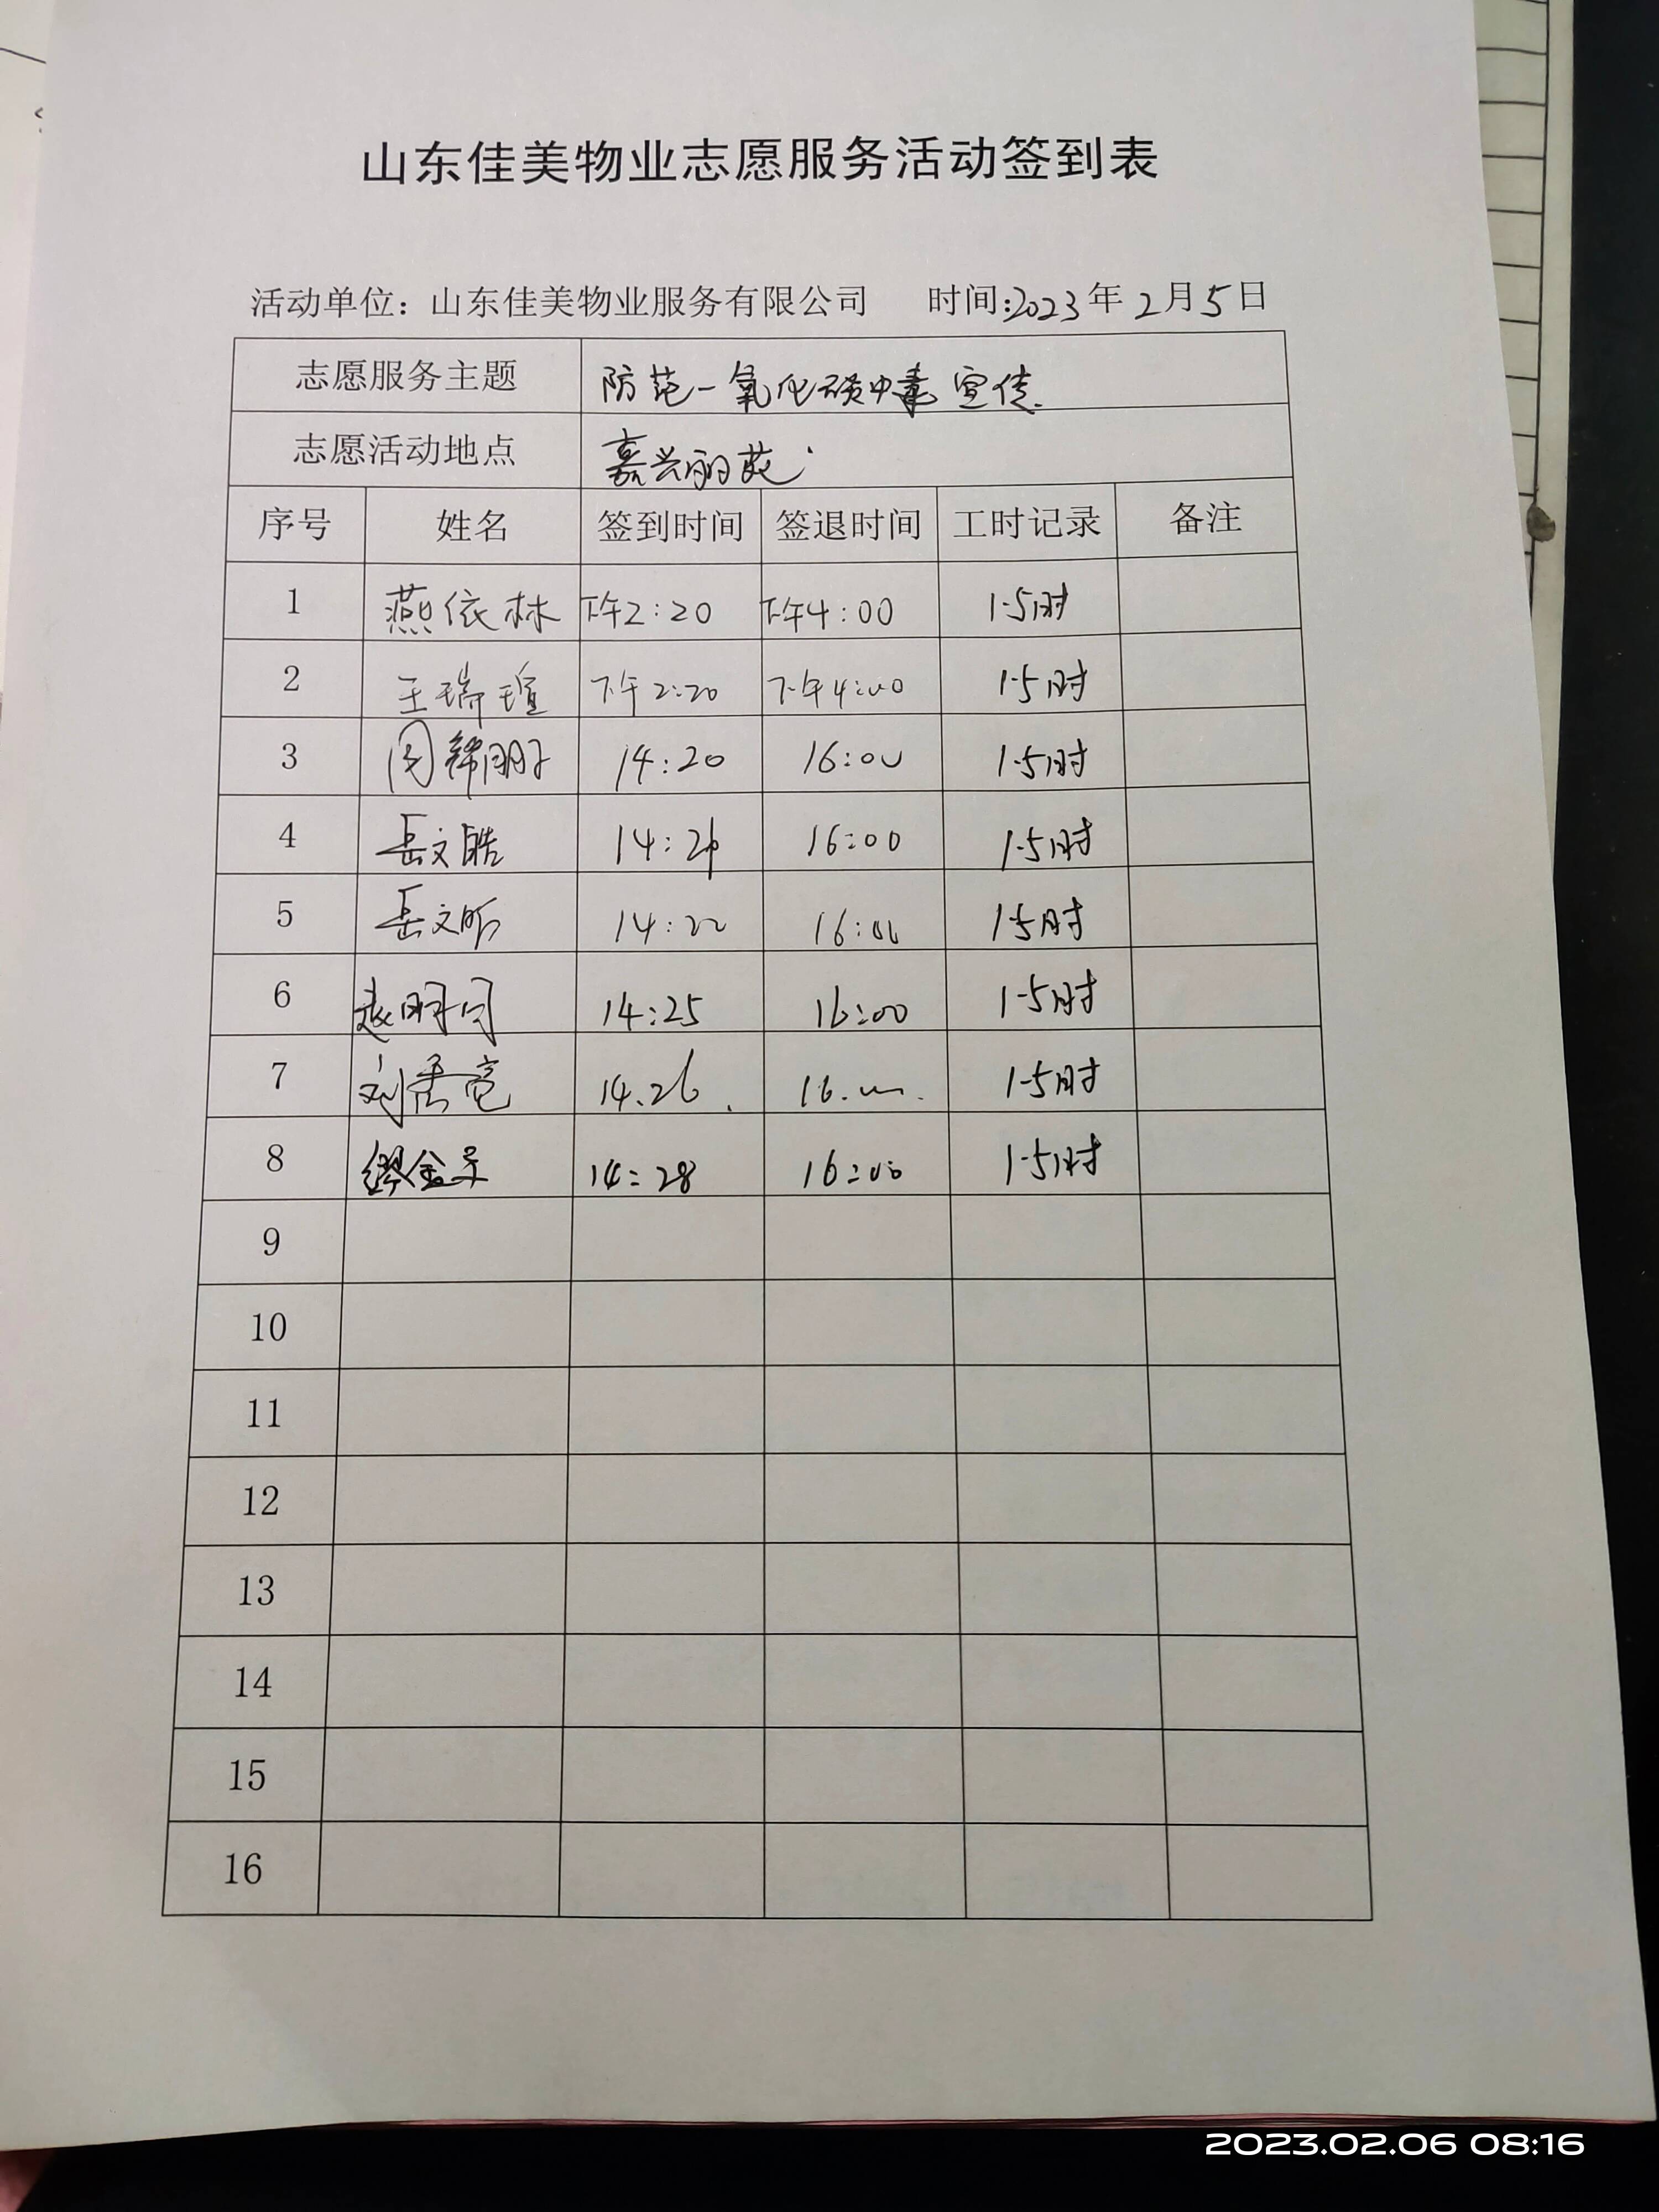 山东佳美物业志愿服务活动签到表
活动单位：山东佳美物业服务有限公司 时间:2023年2月5日
志愿服务主题 防范一氧化碳中毒宣传.
志愿活动地点 嘉兴丽苑
序号 姓名 签到时间 签退时间 工时记录 备注
1 燕依林 下午2:20 下午4:00 1.5时
2 王瑞瑄 下午2:20 下午4:00 1.5时
3 周 14:20 16:00 1.5时
4 岳文皓 14:21 16:00 1.5时
5 岳文昕 14:22 16:00 1.5时
6 赵明月 14:25 16:00 1.5时
7 刘秀亮 14.26 16.00 1.5时
8 14:28 16:00 1.5时
9
10
11
12
13
14
15
16
2023.02.06 08:16